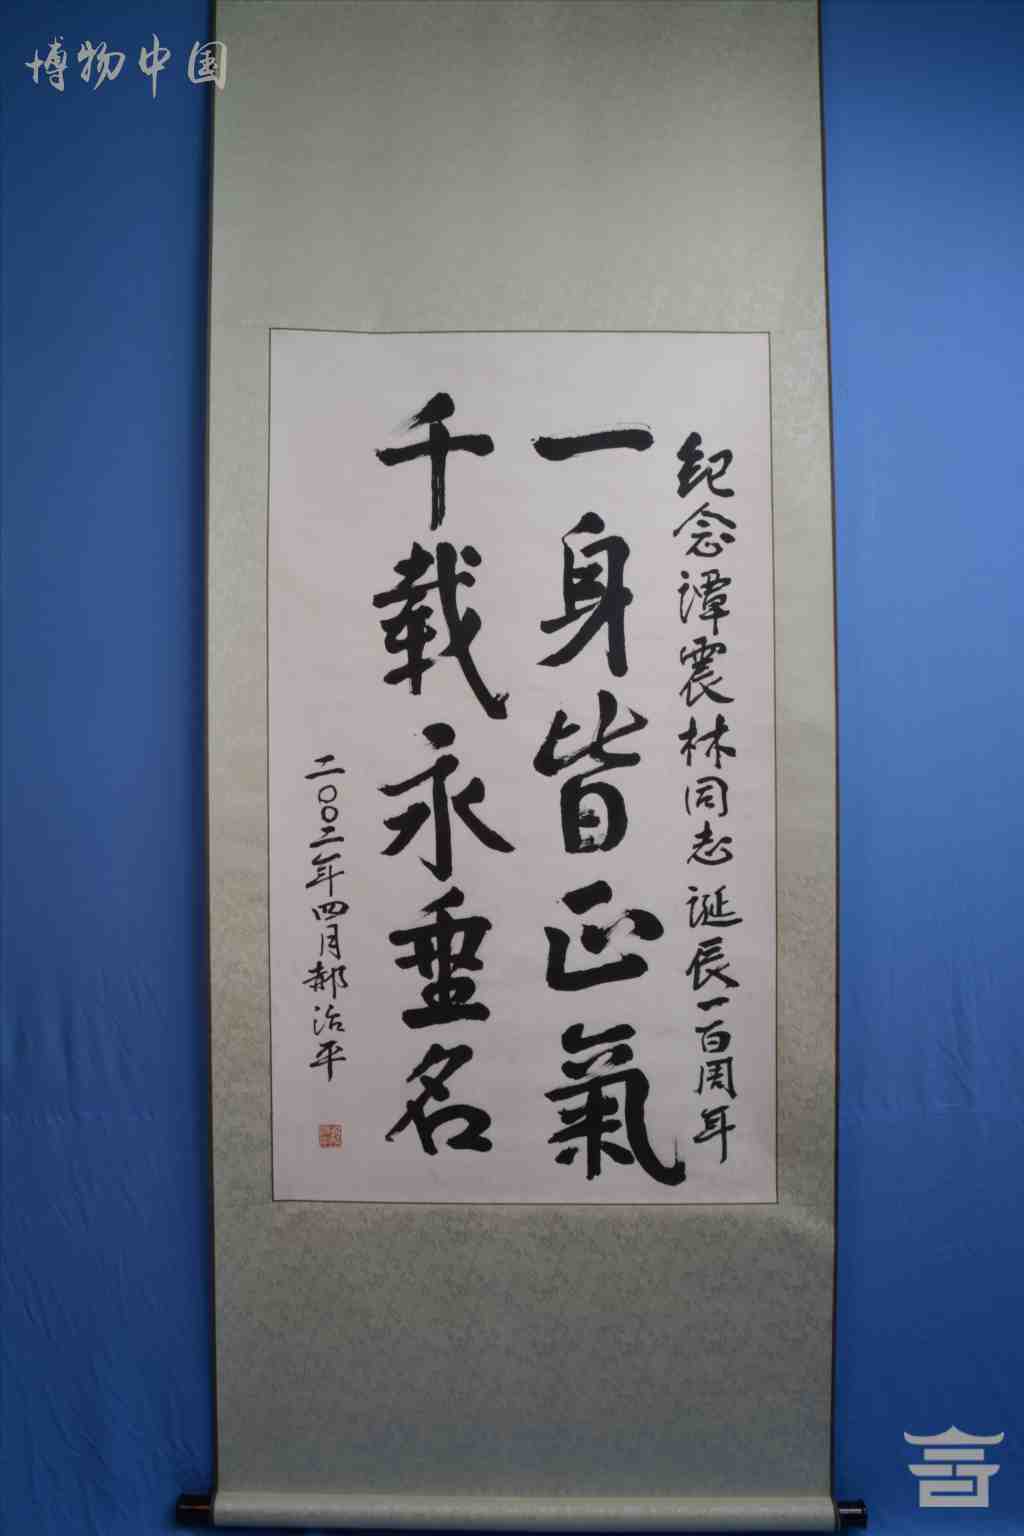 博物中国
纪念谭震林同志诞辰一百周年
一身皆正氣
千载永垂名
二〇〇二年四月郝治平